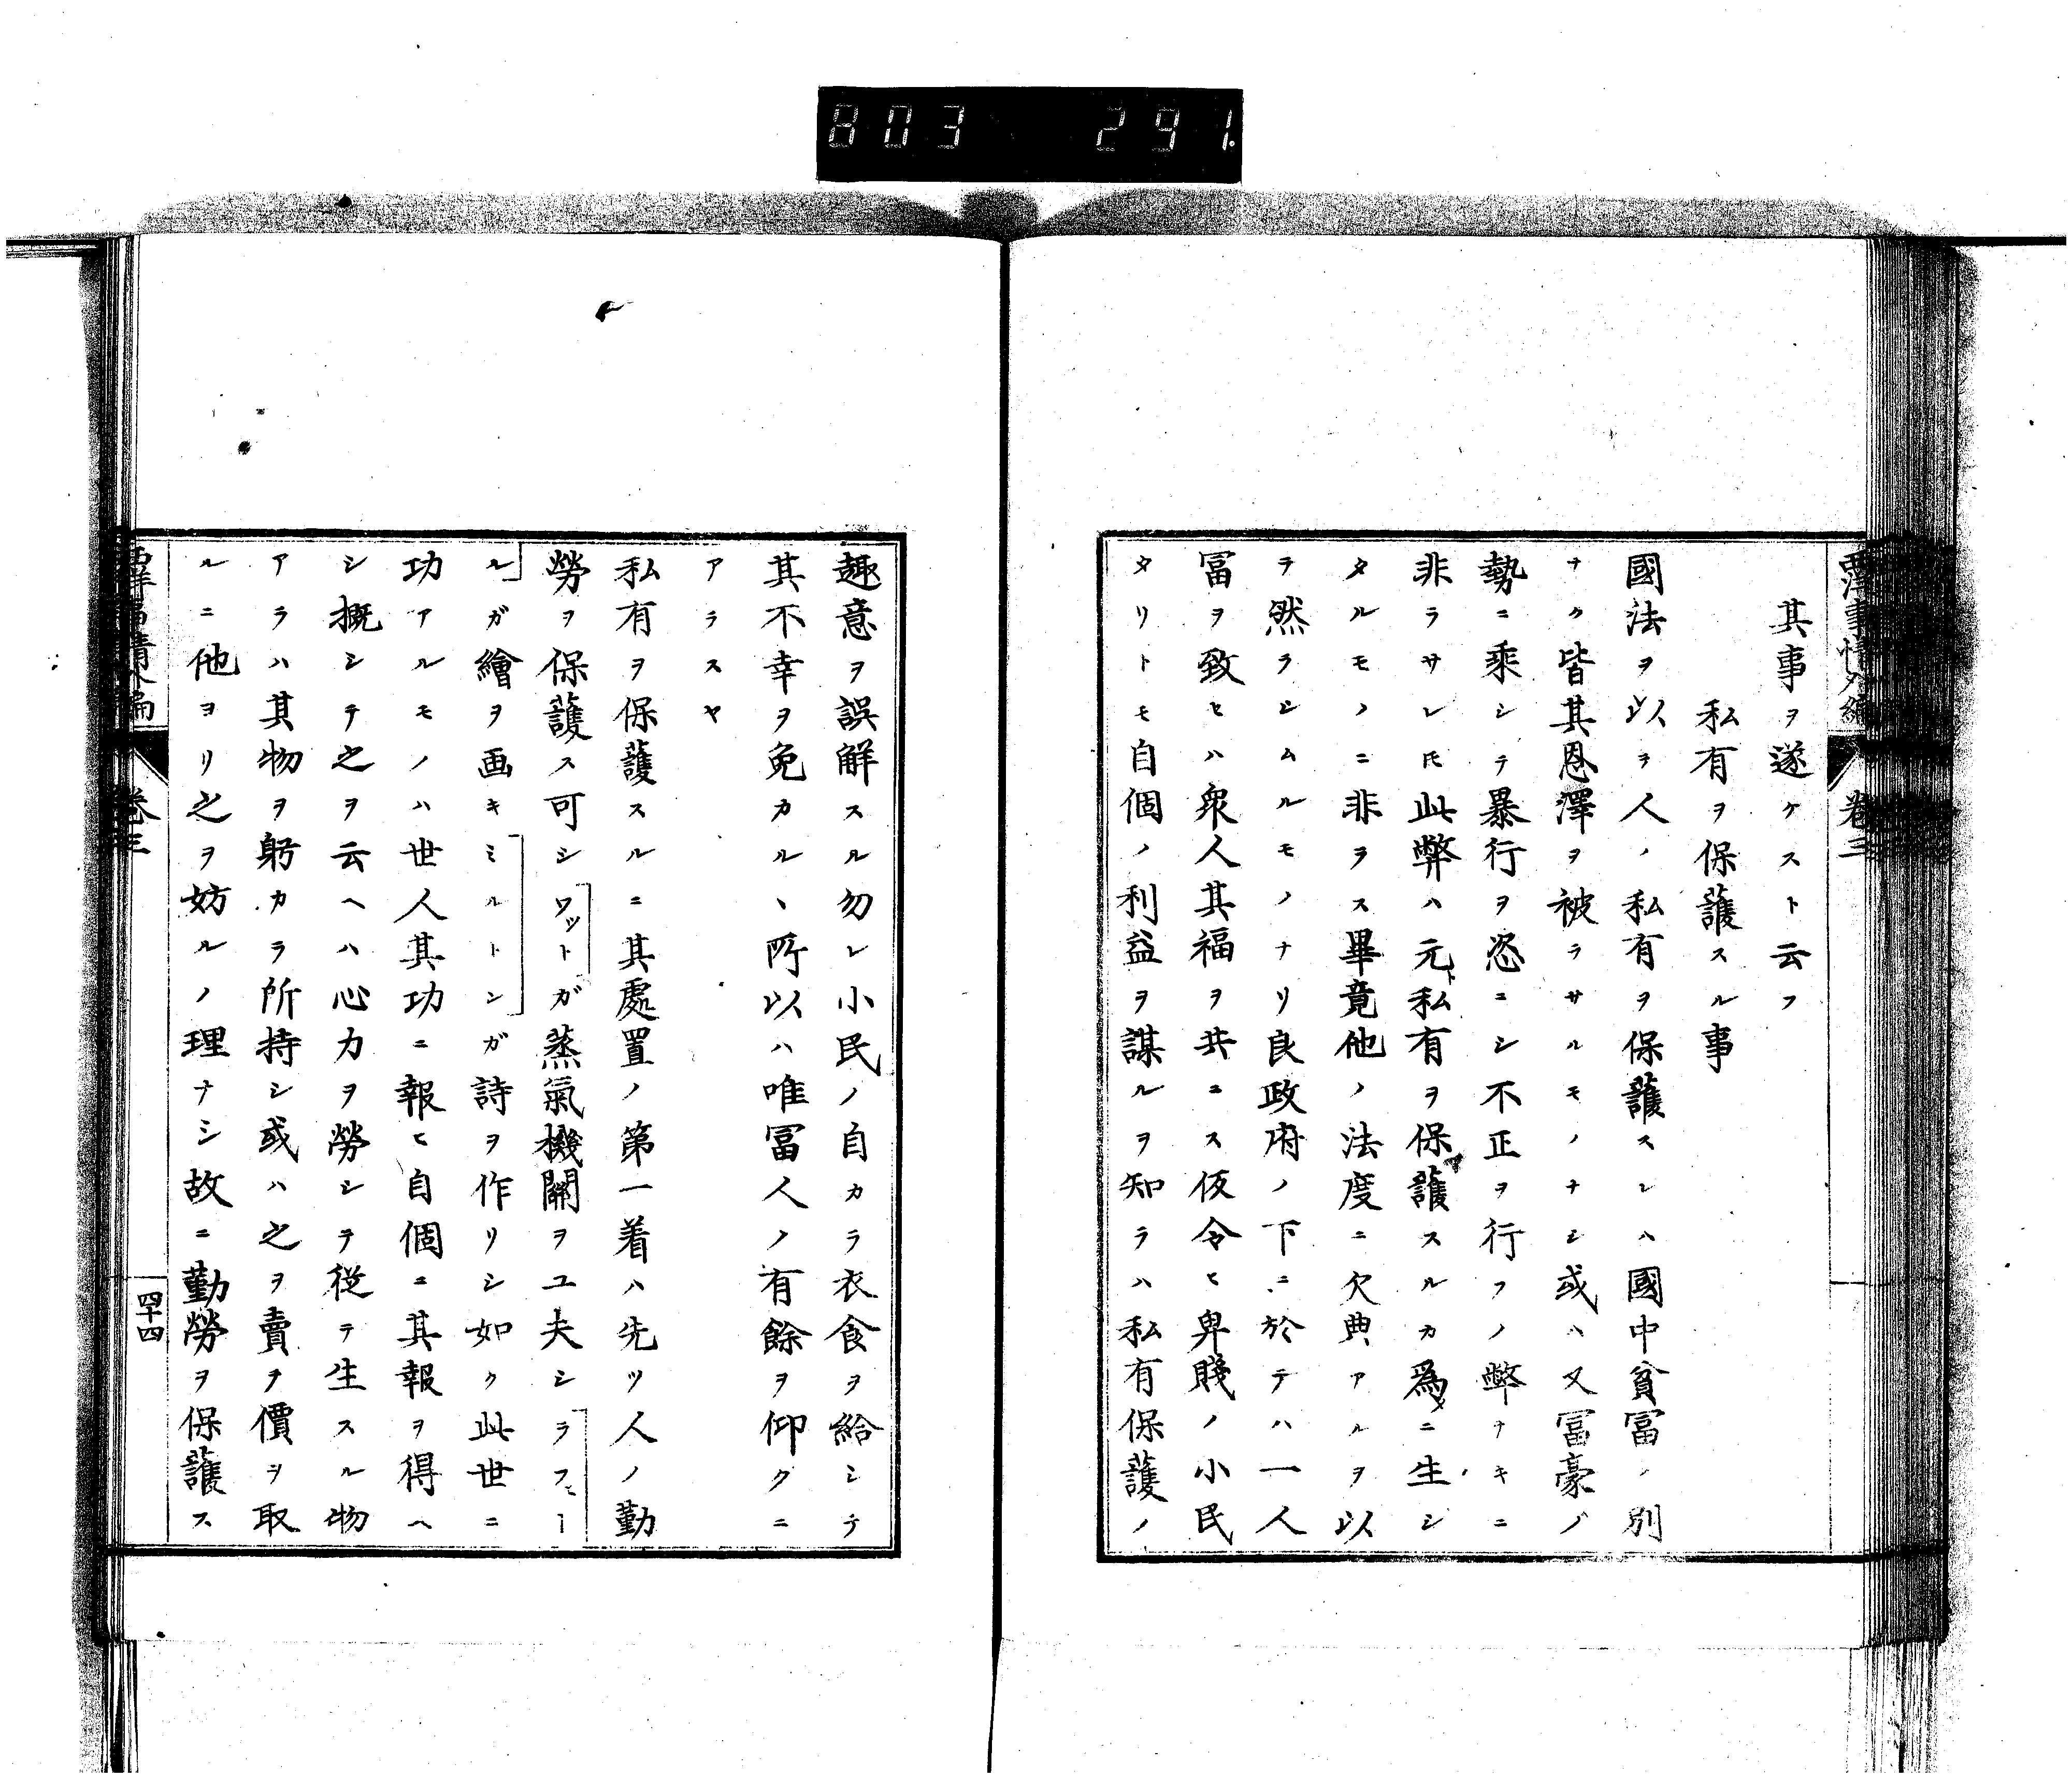 803 291.
西洋事情外編 卷三
其事ヲ遂ケスト云フ
私有ヲ保護スル事
國法ヲ以テ人ノ私有ヲ保護スレハ國中貧冨ノ別
ナク皆其恩澤ヲ被ラサルモノナシ或ハ又冨豪ノ
勢ニ乘シテ暴行ヲ恣ニシ不正ヲ行フノ弊ナキニ
非ラサレ𪜈此弊ハ元ト私有ヲ保護スルカ爲メニ生シ
タルモノニ非ラス畢竟他ノ法度ニ欠典アルヲ以
テ然ラシムルモノナリ良政府ノ下ニ於テハ一人
冨ヲ致セハ衆人其福ヲ共ニス仮令ヒ卑賤ノ小民
タリトモ自個ノ利益ヲ謀ルヲ知ラハ私有保護ノ
趣意ヲ誤解スル勿レ小民ノ自カラ衣食ヲ給シテ
其不幸ヲ免カルヽ所以ハ唯冨人ノ有餘ヲ仰クニ
アラスヤ
私有ヲ保護スルニ其處置ノ第一着ハ先ツ人ノ勤
勞ヲ保護ス可シワットガ蒸氣機關ヲ工夫シラフェー
ルガ繪ヲ画キミルトンガ詩ヲ作リシ如ク此世ニ
功アルモノハ世人其功ニ報ヒ自個ニ其報ヲ得ヘ
シ概シテ之ヲ云ヘハ心力ヲ勞シテ從テ生スル物
アラハ其物ヲ躬カラ所持シ或ハ之ヲ賣テ價ヲ取
ルニ他ヨリ之ヲ妨ルノ理ナシ故ニ勤勞ヲ保護ス
西洋事情外編 卷三
四十四